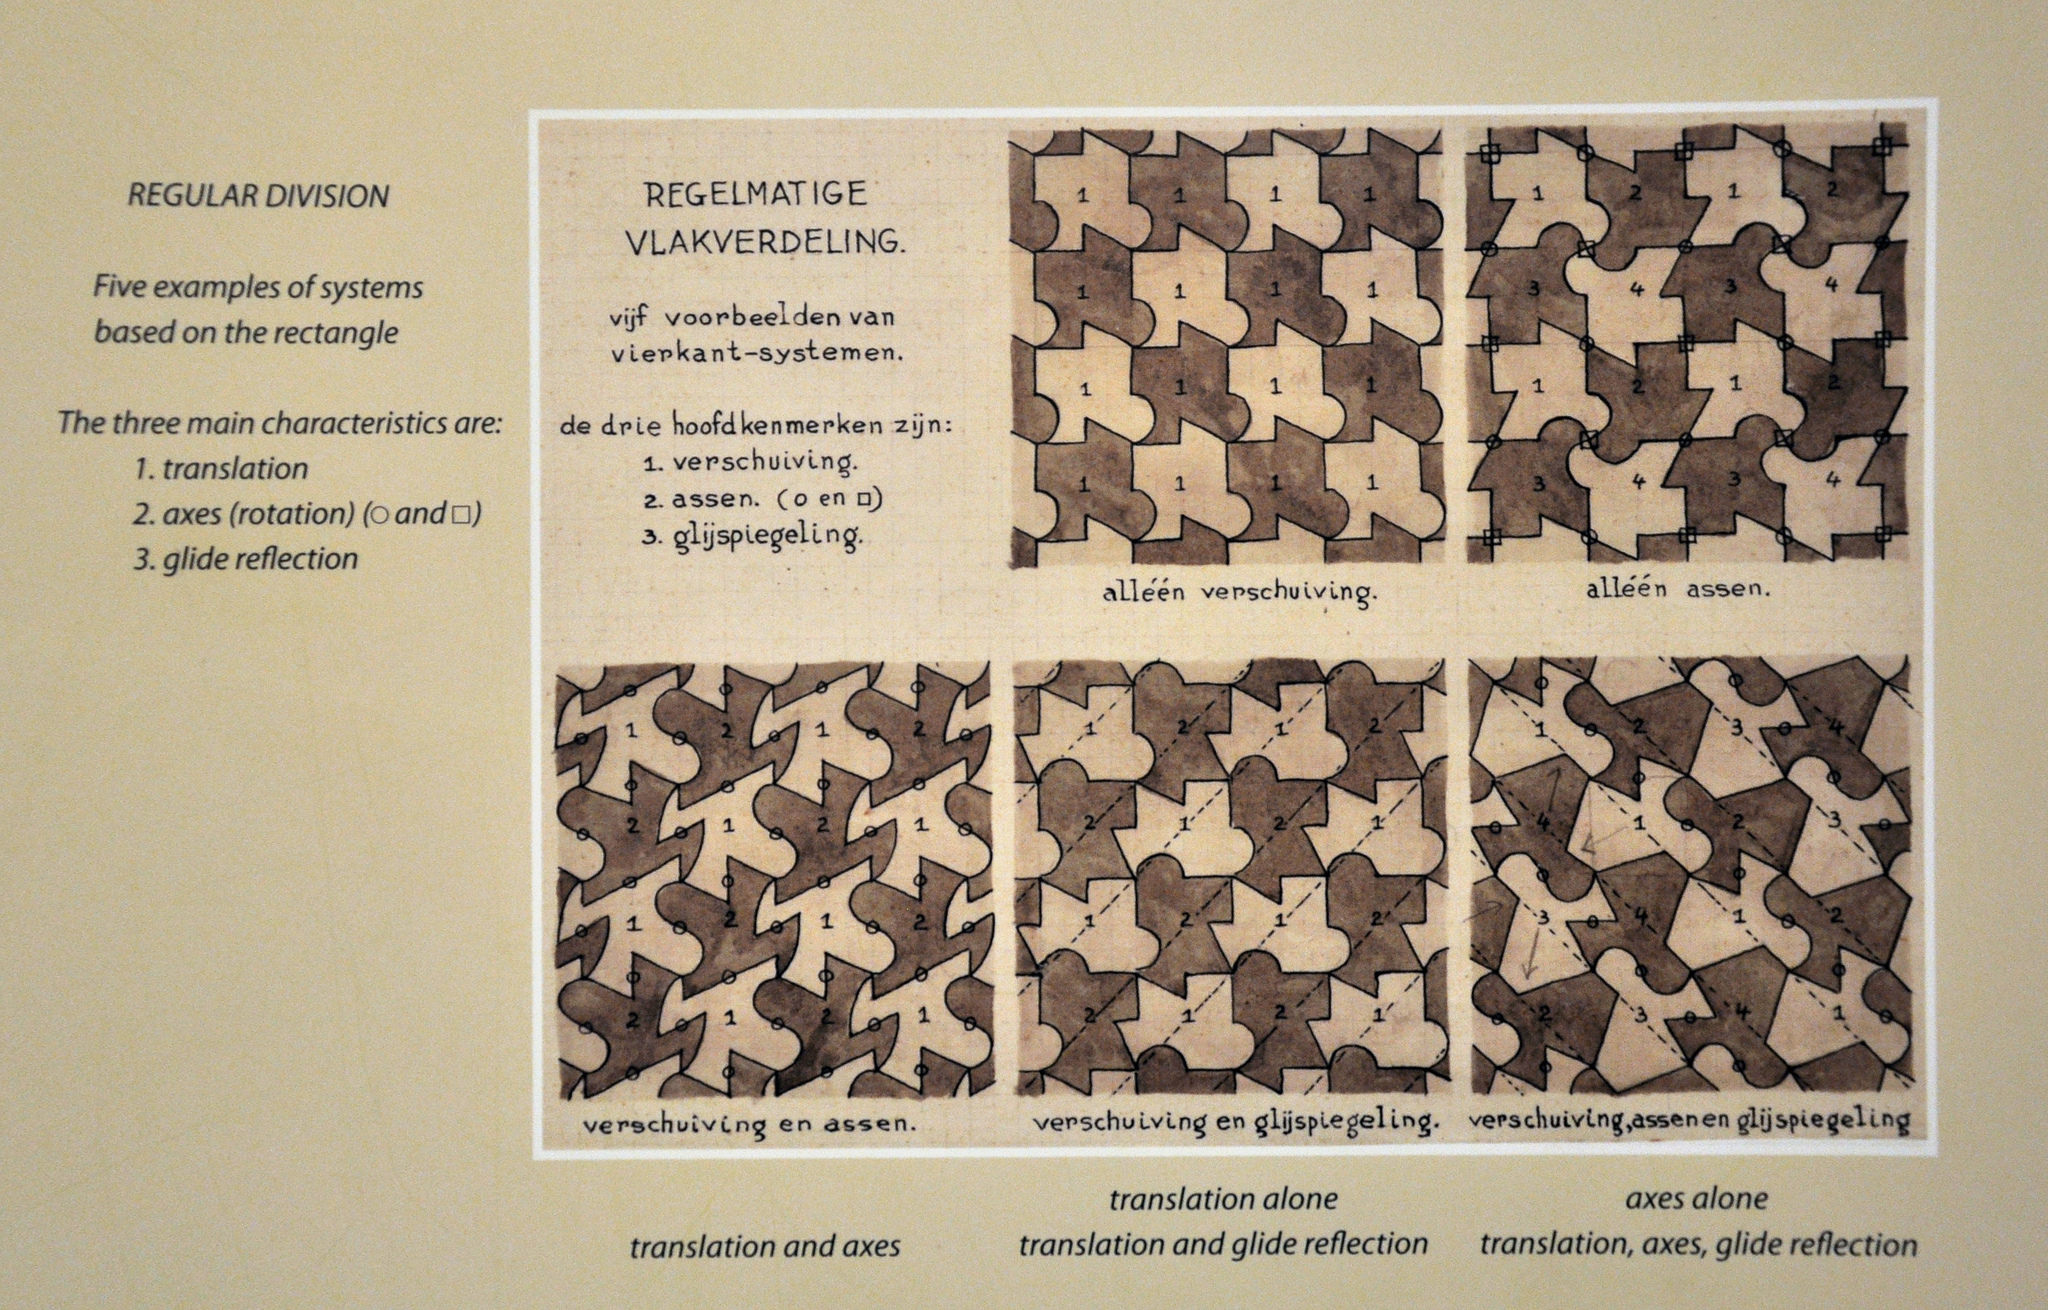 REGULAR DIVISION
Five examples of systems
based on the rectangle
The three main characteristics are:
1. translation
2. axes (rotation) (○ and □)
3. glide reflection
REGELMATIGE
VLAKVERDELING.
vijf voorbeelden van
vierkant-systemen.
de drie hoofdkenmerken zijn:
1. verschuiving.
2. assen. (○ en □)
3. glijspiegeling.
1 1 1 1
1 1 1 1
1 1 1 1
1 1 1 1
alléén verschuiving.
1 2 1 2
3 4 3 4
1 2 1 2
3 4 3 4
alléén assen.
1 2 1 2
2 1 2 1
1 2 1 2
2 1 2 1
verschuiving en assen.
1 2 1 2
2 1 2 1
1 2 1 2
2 1 2 1
verschuiving en glijspiegeling.
1 2 3 4
4 1 2 3
3 4 1 2
2 3 4 1
verschuiving, assen en glijspiegeling
translation alone
axes alone
translation and axes
translation and glide reflection
translation, axes, glide reflection